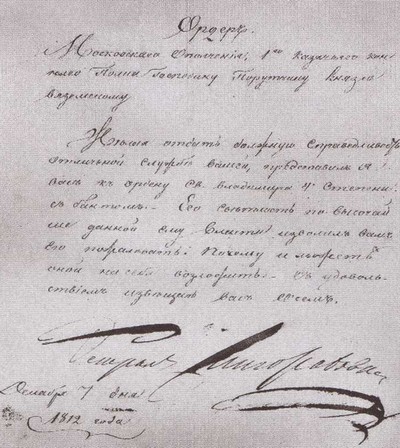 Ордеръ
Московскаго Ополченія, 1го Казачьяго кон-
наго Полка Господину Порутчику Князю
вяземскому
Желая отдать должную справедливость
отличной службе вашей, представилъ я
васъ къ ордену Св. владимира 4й Степени
съ бантомъ. Его светлость по высочай
ше данной ему власти изволилъ вамъ
его пожаловать; Почему и можете
оной на себя возложить. Съ удоволь-
ствіемъ извещаю васъ о семъ.
Генералъ
Декабря 7 дня
1812 года